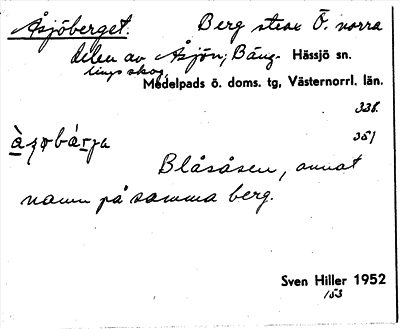 Åsjöberget. Berg strax Ö. norra
delen av Åsjön, Bäng-
lingsskog, Hässjö sn.
Medelpads ö. doms. tg, Västernorrl. län.
338.
351
Blåsåsen, annat
namn på samma berg.
Sven Hiller 1952
153